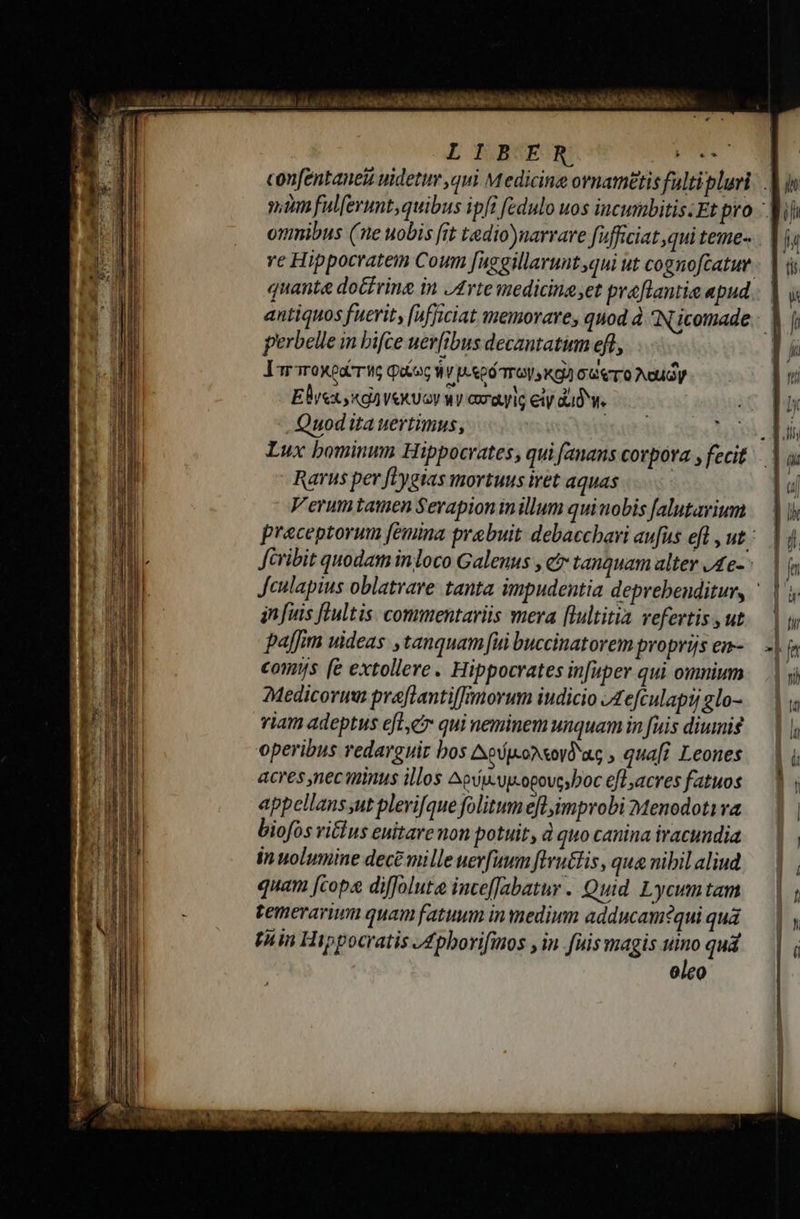 LIBER
consentaneũ uidetur, qui Medicinæ ornamẽtis fulti pluri
mùm fulserunt, quibus ipsi sedulo uos incumbitis. Et pro
omnibus (ne uobis sit tædio) narrare sufficiat, qui teme-
re Hippocratem Coum suggillarunt, qui ut cognoscatur
quantæ doctrinæ in Arte medicinæ, et præstantiæ apud
antiquos fuerit, sufficiat memorare, quod à Nicomade
perbelle in bisce uersibus decantatum est,
Ἱπποκράτης φάος ἦν μερόπων, καὶ σώετο λαῶν
Ἔθνεα, καὶ νεκύων ἦν σπάνις εἰν ἀΐδῃ.
Quod ita uertimus,
Lux hominum Hippocrates, qui sanans corpora, fecit
Rarus per stygias mortuus iret aquas
Verumtamen Serapion in illum qui nobis salutarium
præceptorum semina præbuit debacchari ausus est, ut
scribit quodam in loco Galenus, & tanquam alter Ae-
sculapius oblatrare tanta impudentia deprehenditur,
in suis stultis commentariis mera stultitia refertis, ut
passim uideas, tanquam sui buccinatorem proprijs en-
comijs se extollere. Hippocrates insuper qui omnium
Medicorum præstantissimorum iudicio Aesculapij glo-
riam adeptus est, & qui neminem unquam in suis diuinis
operibus redarguit hos Δρύμολεονδας, quasi Leones
acres, nec minus illos Δρύμυμορους, hoc est, acres fatuos
appellans, ut plerisque solitum est, improbi Menodoti ra
biosos rictus euitare non potuit, à quo canina iracundia
in uolumine decẽ mille uersuum structis, quæ nihil aliud
quam scopæ dissolutæ incessabatur. Quid Lycum tam
temerarium quam fatuum in medium adducam? qui quã
tũ in Hippocratis Aphorismos, in suis magis uino quã
oleo